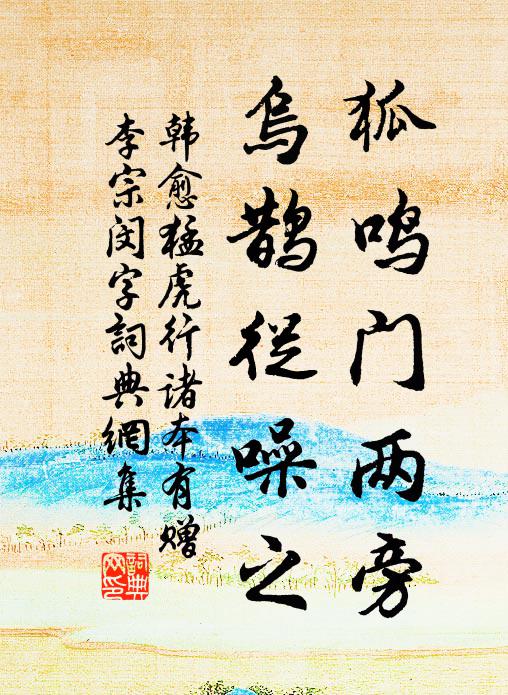 狐鸣门两旁
乌鹊从噪之
韩愈猛虎行诸本有赠
李宗闵字詞典網集
詞典
网印